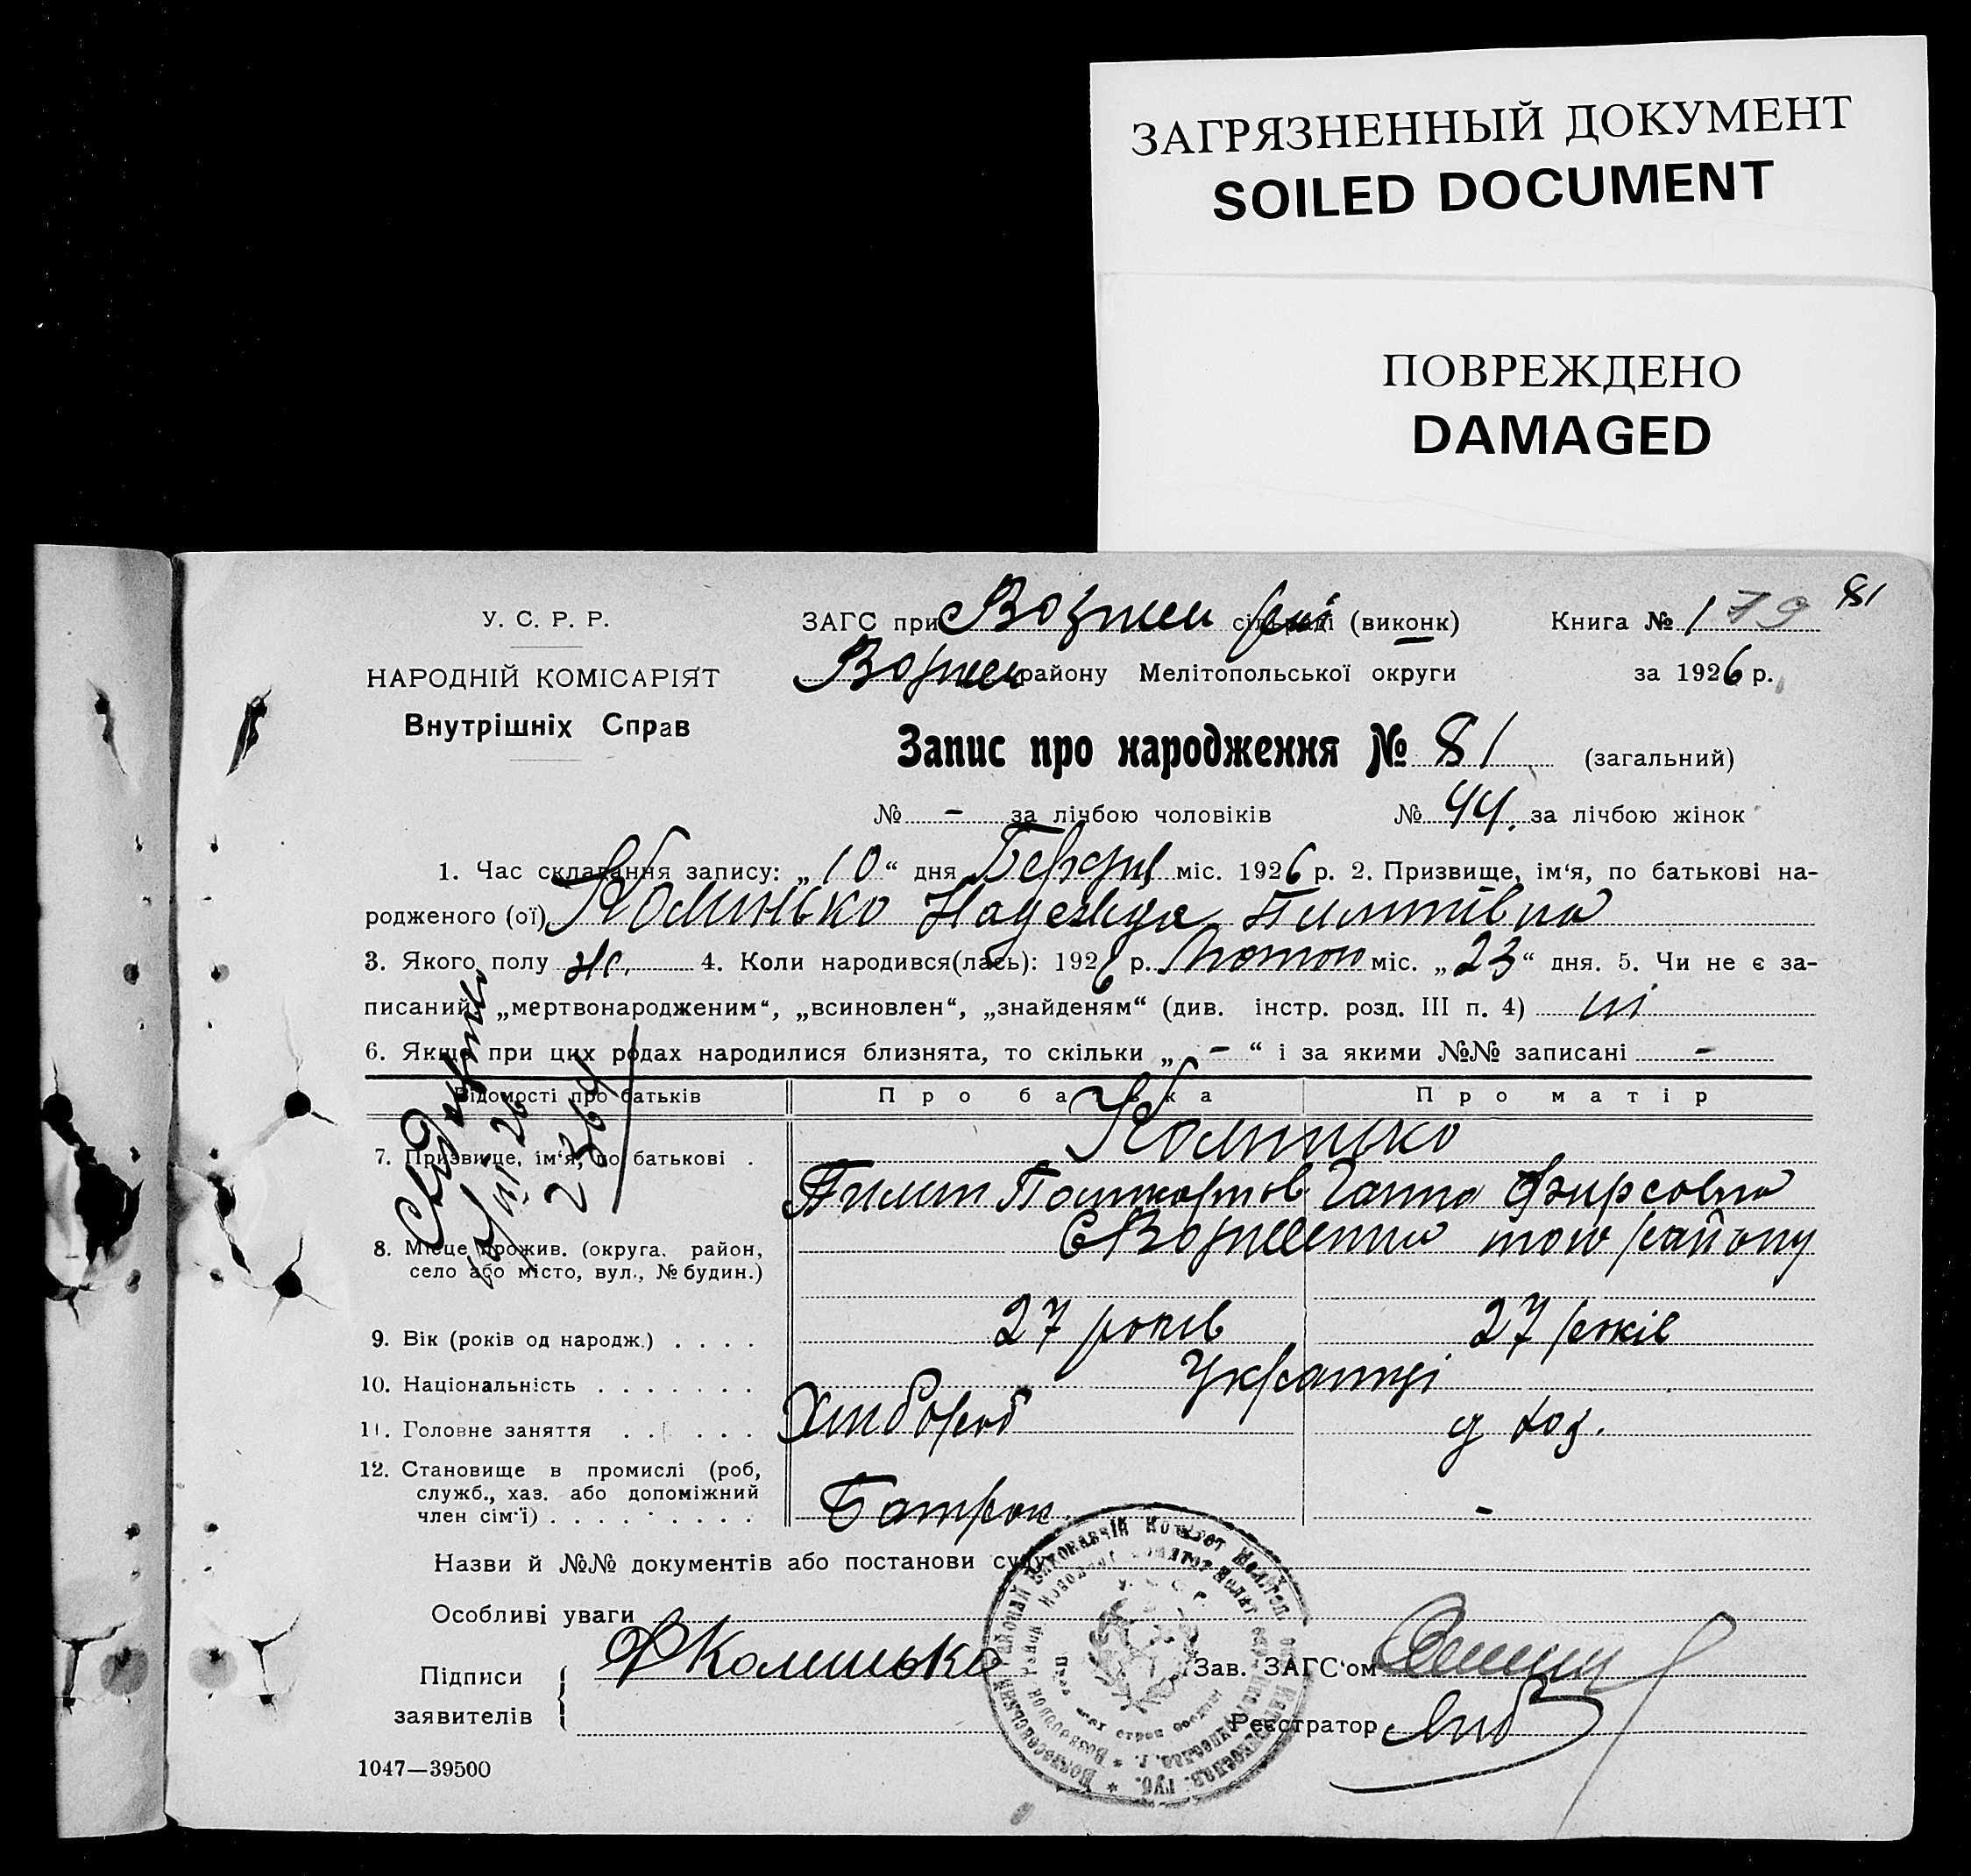 ЗАГРЯЗНЕННЫЙ ДОКУМЕНТ
SOILED DOCUMENT
ПОВРЕЖДЕНО
DAMAGED
81
У. С. Р. Р.
НАРОДНІЙ КОМІСАРІЯТ
Внутрішніх Справ
ЗАГС при Вознесен сільраді (виконк)
Вознесен району Мелітопольської округи
Книга № 1 79
за 1926 р.
Запис про народження № 81 (загальний)
№ - за лічбою чоловіків № 44. за лічбою жінок
1. Час складання запису: „10“ дня Березня міс. 1926 р. 2. Призвище, ім‘я, по батькові на-
родженого (ої) Колинько Надежда Пилипівна
3. Якого полу ж. 4. Коли народився(лась): 1926 р. Лютого міс. „23“ дня. 5. Чи не є за-
писаний „мертвонародженим“, „всиновлен“, „знайденям“ (див. інстр. розд. III п. 4) ні
6. Якщо при цих родах народилися близнята, то скільки „ - “ і за якими №№ записані -
Відомості про батьків Про батька Про матір
7. Призвище, ім‘я, по батькові . Колинько
Пилип Ганна Фирсовна
8. Місце прожив. (округа, район,
село або місто, вул., № будин.)
С Вознесенка того району
9. Вік (років од народж.) . . . . 27 років 27 років
10. Національність . . . . . . . Українці
11. Головне заняття . . . . . . Хлібороб д хоз.
12. Становище в промислі (роб,
служб., хаз. або допоміжний
член сім‘ї) . . . . . . . . . Батрак -
Назви й №№ документів або постанови суду
Особливі уваги
Підписи
заявителів
Колинько
Зав. ЗАГС‘ом
Реєстратор
1047—39500